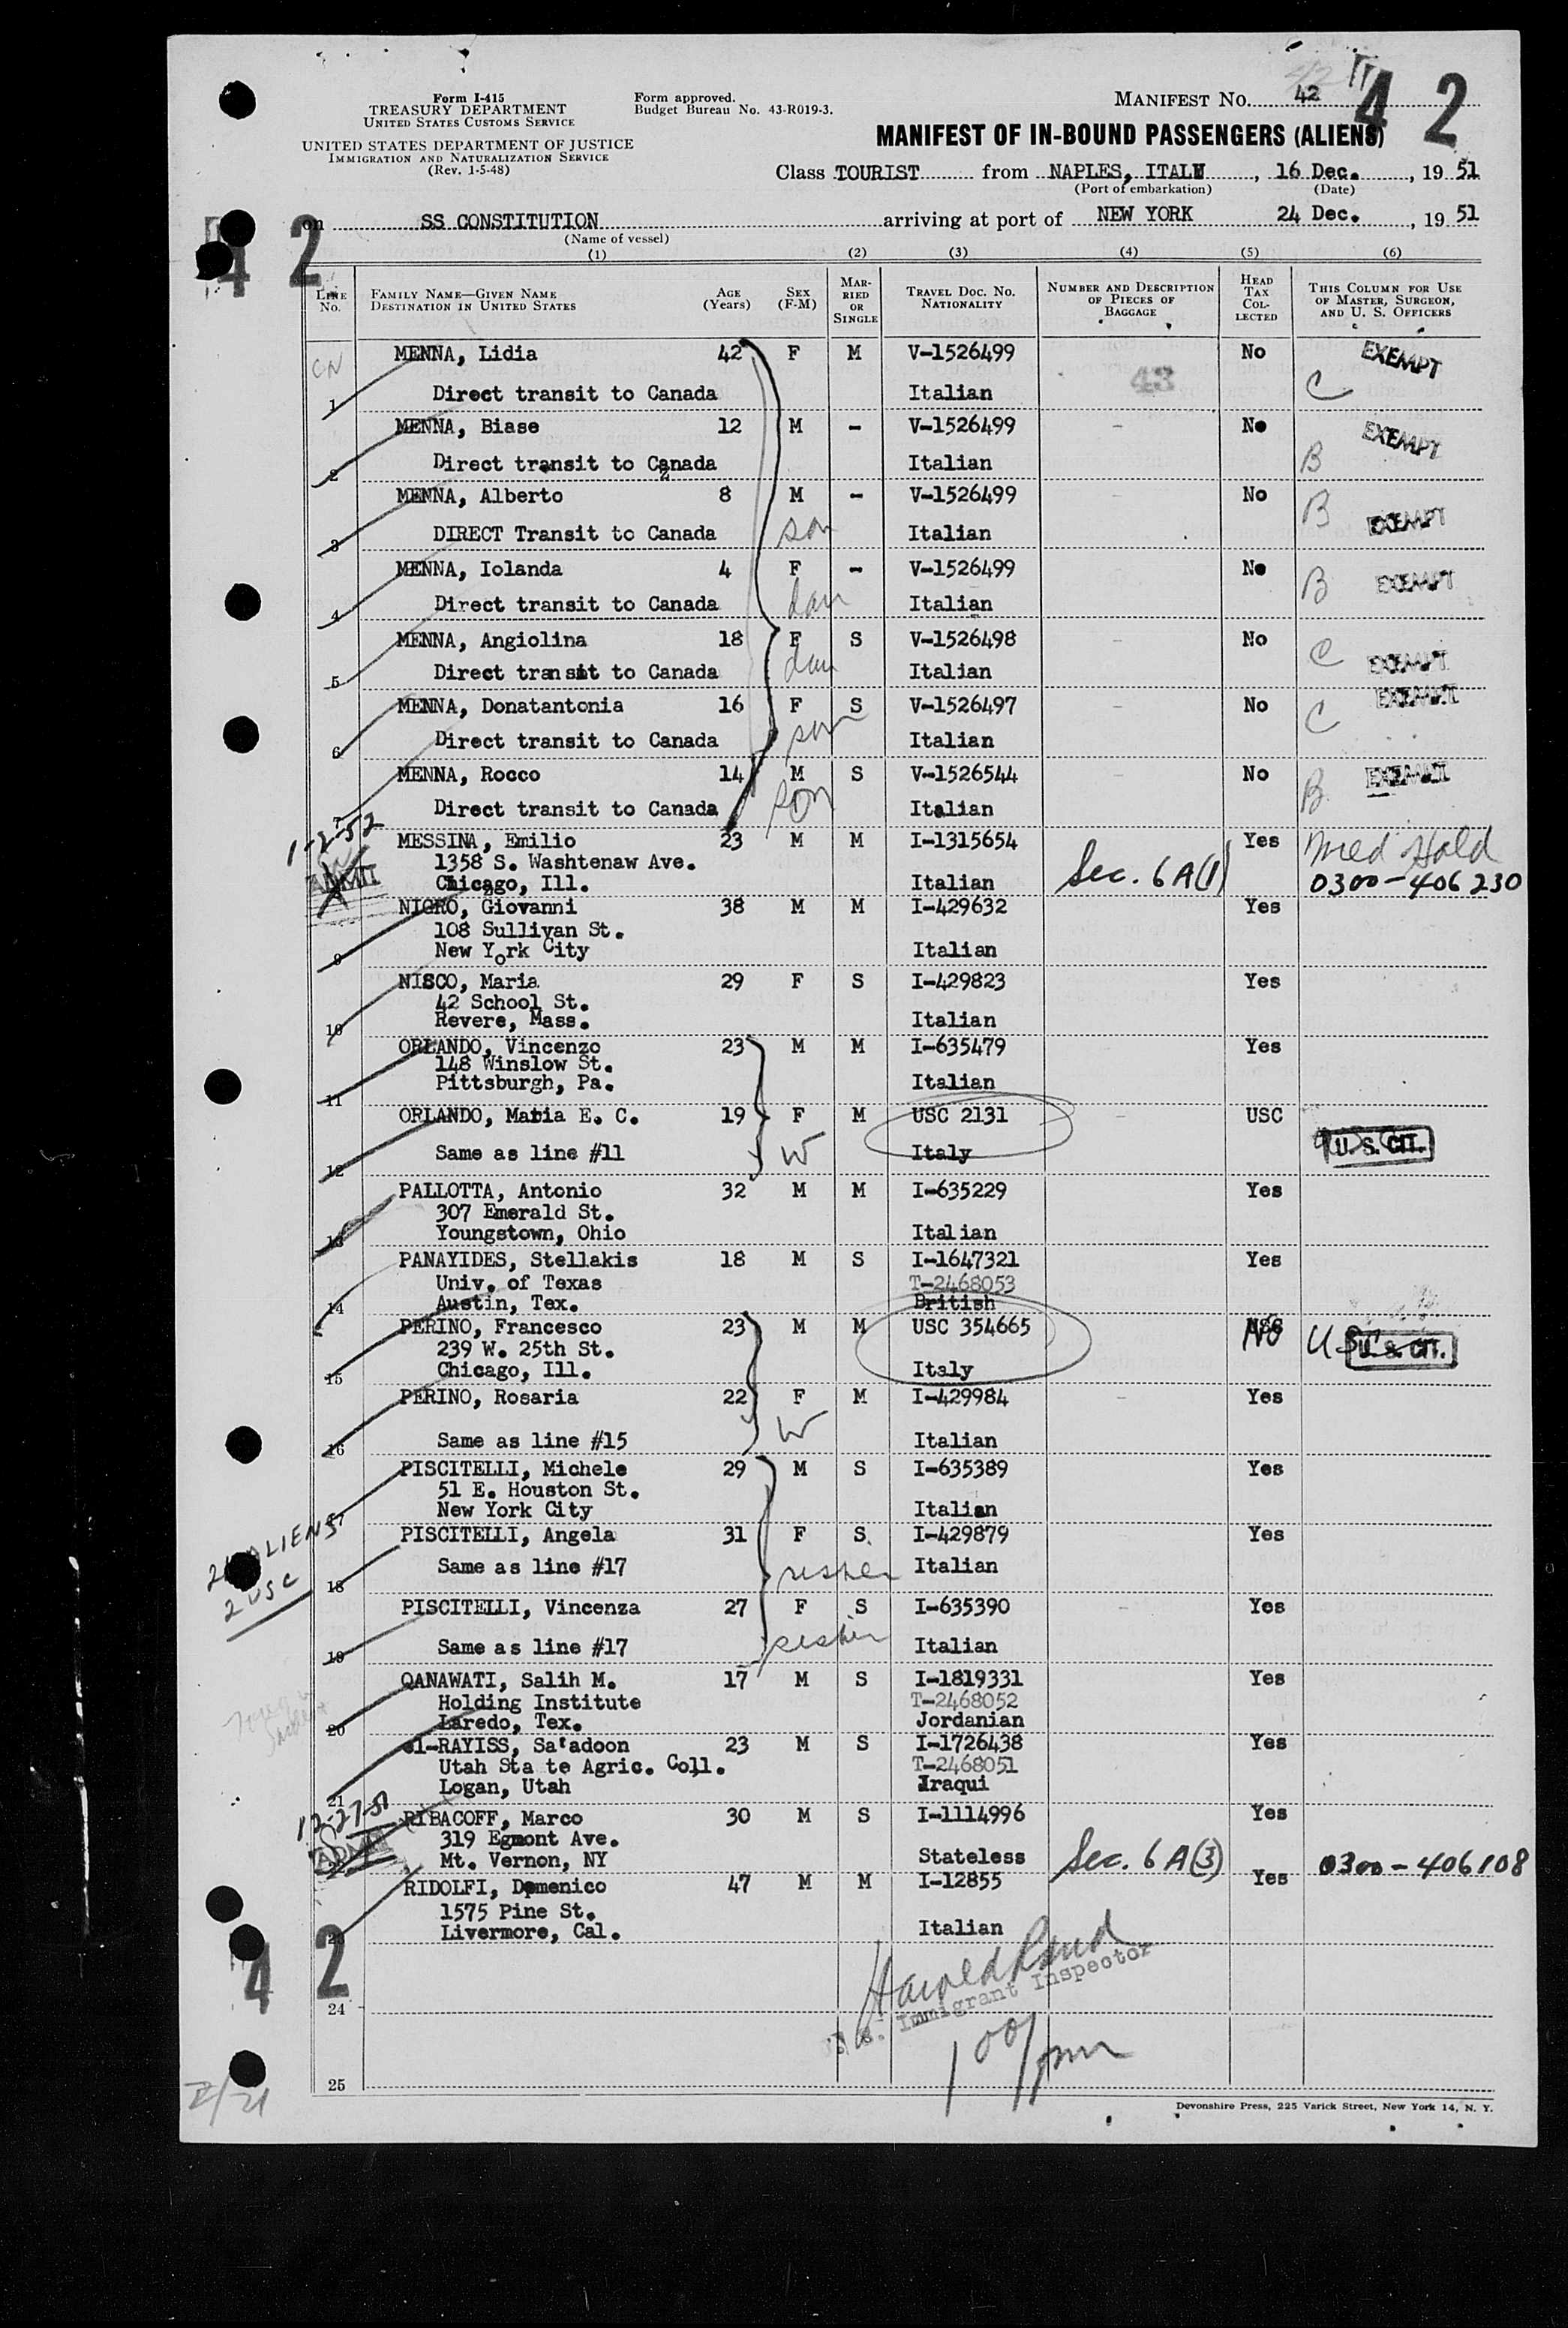 42
Form I-415
TREASURY DEPARTMENT
UNITED STATES CUSTOMS SERVICE
UNITED STATES DEPARTMENT OF JUSTICE
IMMIGRATION AND NATURALIZATION SERVICE
(Rev. 1-5-48)
Form approved.
Budget Bureau No. 43-R019-3.
MANIFEST NO. 42
42
MANIFEST OF IN-BOUND PASSENGERS (ALIENS)
Class TOURIST from NAPLES, ITALY, 16 Dec., 1951
(Port of embarkation) (Date)
42
on SS CONSTITUTION arriving at port of NEW YORK 24 Dec., 1951
(Name of vessel)
(1) (2) (3) (4) (5) (6)
LINE NO. FAMILY NAME—GIVEN NAME DESTINATION IN UNITED STATES AGE (Years) SEX (F-M) MARRIED OR SINGLE TRAVEL DOC. NO. NATIONALITY NUMBER AND DESCRIPTION OF PIECES OF BAGGAGE HEAD TAX COLLECTED THIS COLUMN FOR USE OF MASTER, SURGEON, AND U. S. OFFICERS
CN MENNA, Lidia 42 F M V-1526499 43 No EXEMPT
1 Direct transit to Canada Italian C
MENNA, Biase 12 M - V-1526499 - No EXEMPT
2 Direct transit to Canada Italian B
MENNA, Alberto 8 M - V-1526499 - No B
3 DIRECT Transit to Canada son Italian EXEMPT
MENNA, Iolanda 4 F - V-1526499 - No B EXEMPT
4 Direct transit to Canada dau Italian
MENNA, Angiolina 18 F S V-1526498 - No C EXEMPT
5 Direct transit to Canada dau Italian
MENNA, Donatantonia 16 F S V-1526497 - No EXEMPT
6 Direct transit to Canada son Italian C
MENNA, Rocco 14 M S V-1526544 - No EXEMPT
7 Direct transit to Canada son Italian B
1-2-52 MESSINA, Emilio 23 M M I-1315654 Yes Med Hold
1358 S. Washtenaw Ave. Sec. 6A(1)
ADMIT Chicago, Ill. Italian 0300-406230
NIGRO, Giovanni 38 M M I-429632 Yes
108 Sullivan St.
9 New York City Italian
NISCO, Maria 29 F S I-429823 Yes
42 School St.
10 Revere, Mass. Italian
ORLANDO, Vincenzo 23 M M I-635479 Yes
148 Winslow St.
11 Pittsburgh, Pa. Italian
ORLANDO, Maria E. C. 19 F M USC 2131 - USC
12 Same as line #11 W Italy U.S. CIT.
PALLOTTA, Antonio 32 M M I-635229 Yes
307 Emerald St.
13 Youngstown, Ohio Italian
PANAYIDES, Stellakis 18 M S I-1647321 Yes
Univ. of Texas T-2468053
14 Austin, Tex. British
PERINO, Francesco 23 M M USC 354665 No
239 W. 25th St. USC U. S. CIT.
15 Chicago, Ill. Italy
PERINO, Rosaria 22 F M I-429984 - Yes
16 Same as line #15 W Italian
PISCITELLI, Michele 29 M S I-635389 Yes
51 E. Houston St.
17 New York City Italian
ALIENS PISCITELLI, Angela 31 F S. I-429879 Yes
18 Same as line #17 Italian
2 USC
PISCITELLI, Vincenza 27 F S I-635390 - Yes
19 Same as line #17 Italian
QANAWATI, Salih M. 17 M S I-1819331 Yes
Holding Institute T-2468052
20 Laredo, Tex. Jordanian
el-RAYISS, Sa'adoon 23 M S I-1726438 Yes
Utah Sta te Agric. Coll. T-2468051
21 Logan, Utah Iraqui
12-27-51 RIBACOFF, Marco 30 M S I-1114996 Yes
319 Egmont Ave.
ADMIT Mt. Vernon, NY Stateless Sec. 6A(3) 0300-406108
RIDOLFI, Domenico 47 M M I-12855 Yes
1575 Pine St.
23 Livermore, Cal. Italian
42
Harold
24 U.S. Immigrant Inspector
1 00/pm
25
Devonshire Press, 225 Varick Street, New York 14, N. Y.